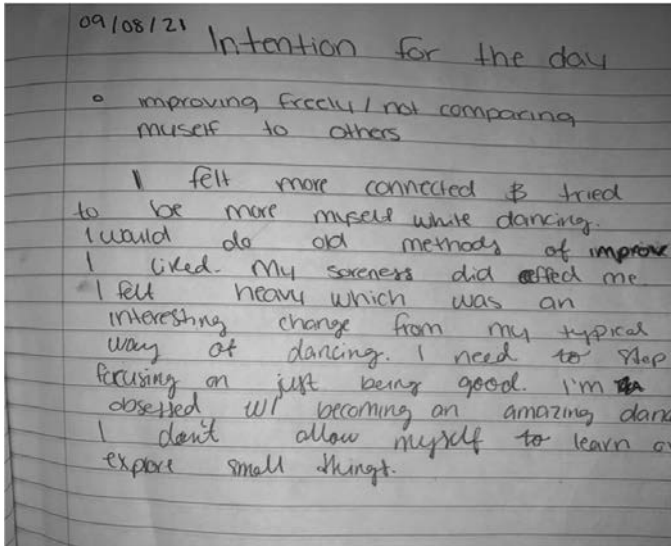 09/08/21
Intention for the day
improving freely / not comparing
myself to others
I felt more connected & tried
to be more myself while dancing.
I would do old methods of improve
I liked. My soreness did effed me
I felt heavy which was an
interesting change from my typical
way of dancing. I need to stop
focusing on just being good. I'm
obsessed w/ becoming an amazing danc
I don't allow myself to learn or
explore small things.